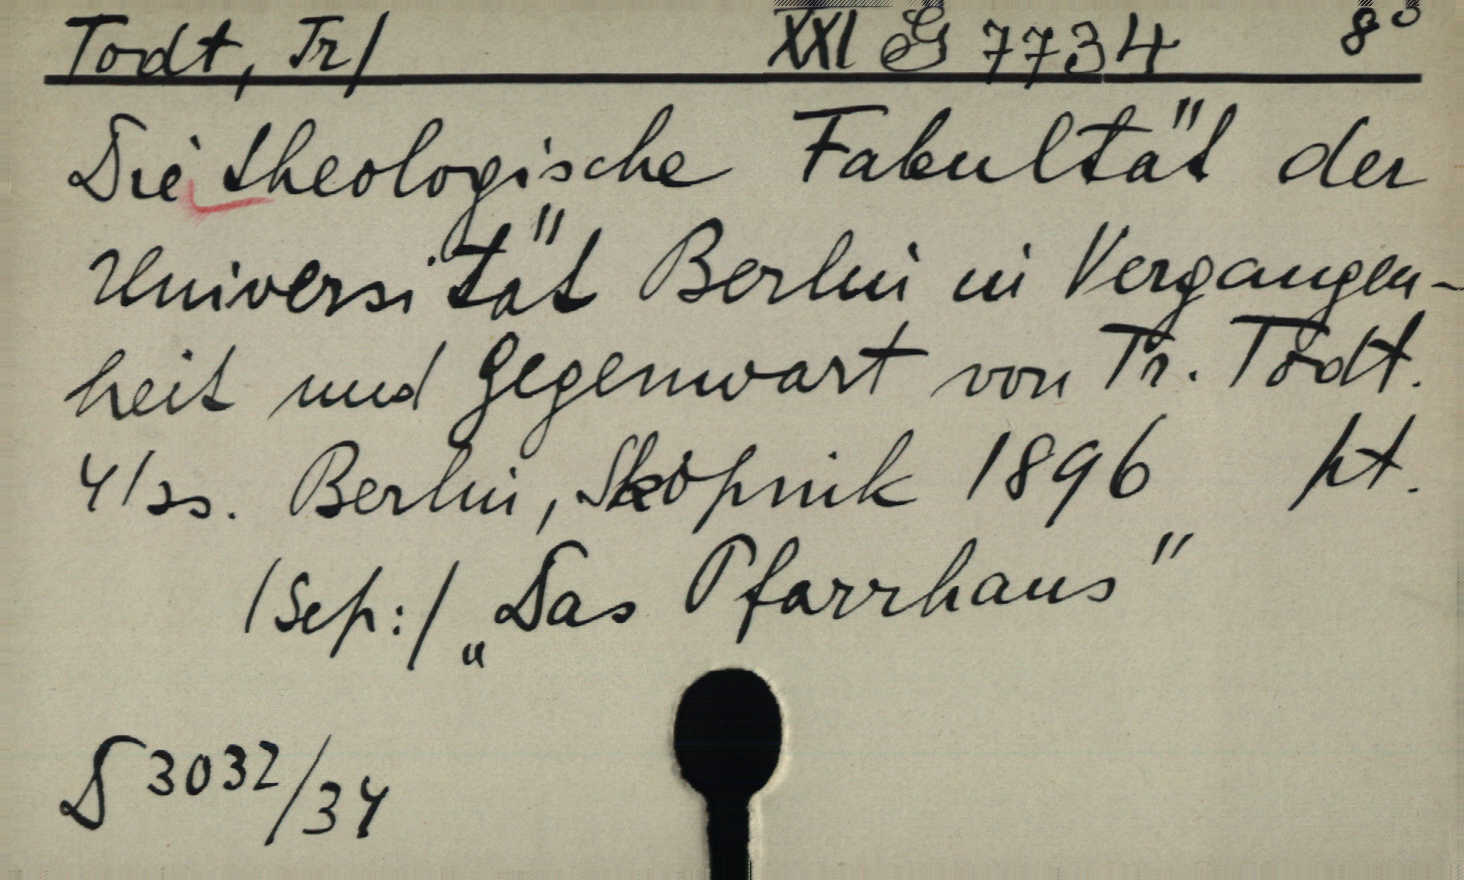 Todt, Tr/ XXI G 7734 8°
Die theologische Fakultät der
Universität Berlin in Vergangen-
heit und Gegenwart von Tr. Todt.
4/ss. Berlin, Sköpnik 1896 kt.
/Sep:/ „Das Pfarrhaus"
D 3032/34